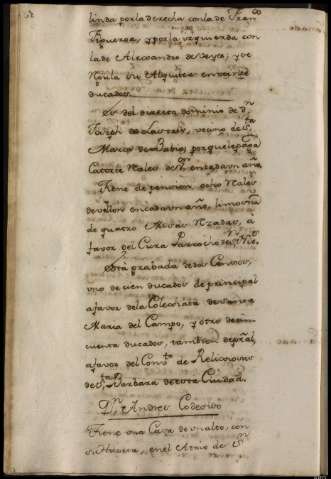 linda por la derecha con la de Fran.co
Figueroa, y por la izquierda con
la de Alexandro de
su Alquiler en veinte
ducados.
Es del directo dominio de D.n
Joseph de vezino de S.ta
Maria porque le paga
Catorce Rales de V.on en cada un año
Tiene de pension ocho Rales
de vellon en cada un año, limosna
de quatro Misas Rezadas, a
favor del Cura Parrocho de
Está grabada de dos Censos,
uno de cien ducados de principal
a favor de la Colegiata de Santa
Maria del Campo, y otro de cin-
cuenta ducados, tambien de pral,
a favor del Conv.to de Religiosas
de S.ta Barbara de esta Ciudad.
D.n Andres Codesido
Tiene una Casa de un alto, con
su Huerta, en el Atrio de S.n